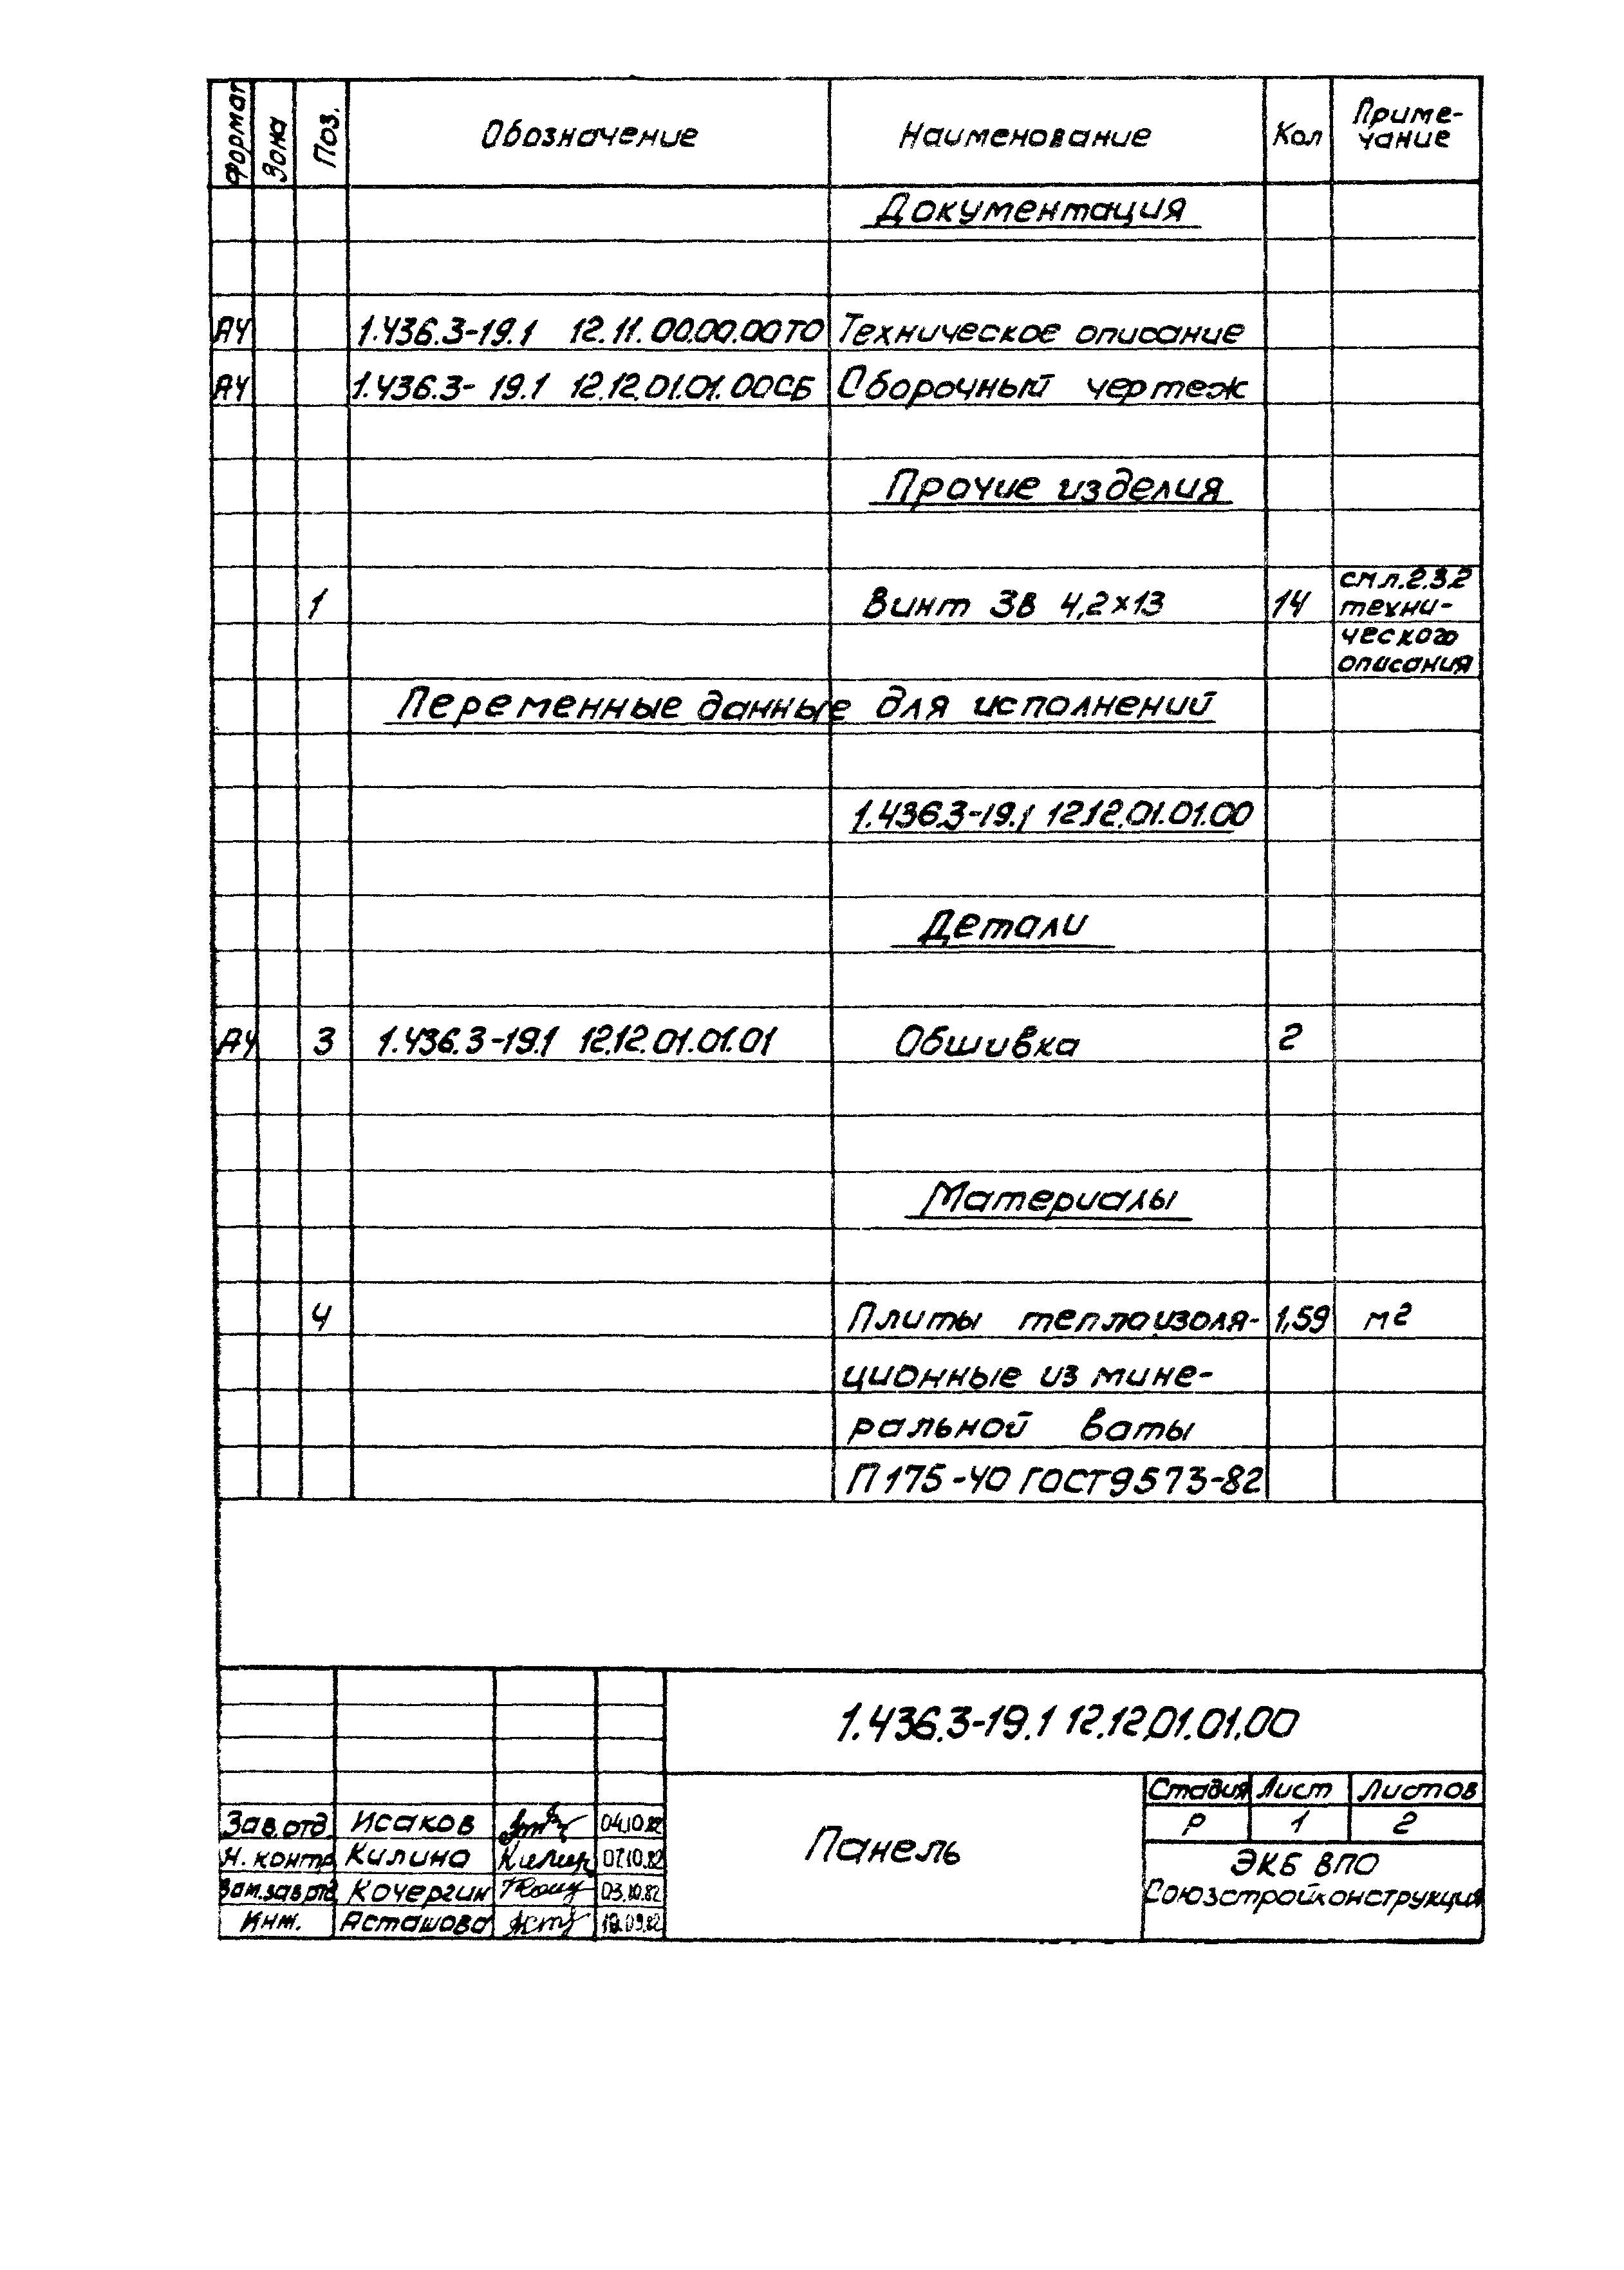 Формат Зона Поз. Обозначение Наименование Кол Приме-
чание
Документация
А4 1.436.3-19.1 12.11.00.00.00ТО Техническое описание
А4 1.436.3-19.1 12.12.01.01.00СБ Сборочный чертеж
Прочие изделия
см.п.2.3.2
1 Винт 3В 4,2×13 14 техни-
ческого
описания
Переменные данные для исполнений
1.436.3-19.1 12.12.01.01.00
Детали
А4 3 1.436.3-19.1 12.12.01.01.01 Обшивка 2
Материалы
4 Плиты теплоизоля- 1,59 м2
ционные из мине-
ральной ваты
П175-40 ГОСТ 9573-82
1.436.3-19.1 12.12.01.01.00
Стадия Лист Листов
Р 1 2
Панель
ЭКБ ВПО
Союзстройконструкция
Зав.отд. Исаков 04.10.82
Н. контр Килина 07.10.82
Зам.зав.отд Кочергин 03.10.82
Инж. Асташова